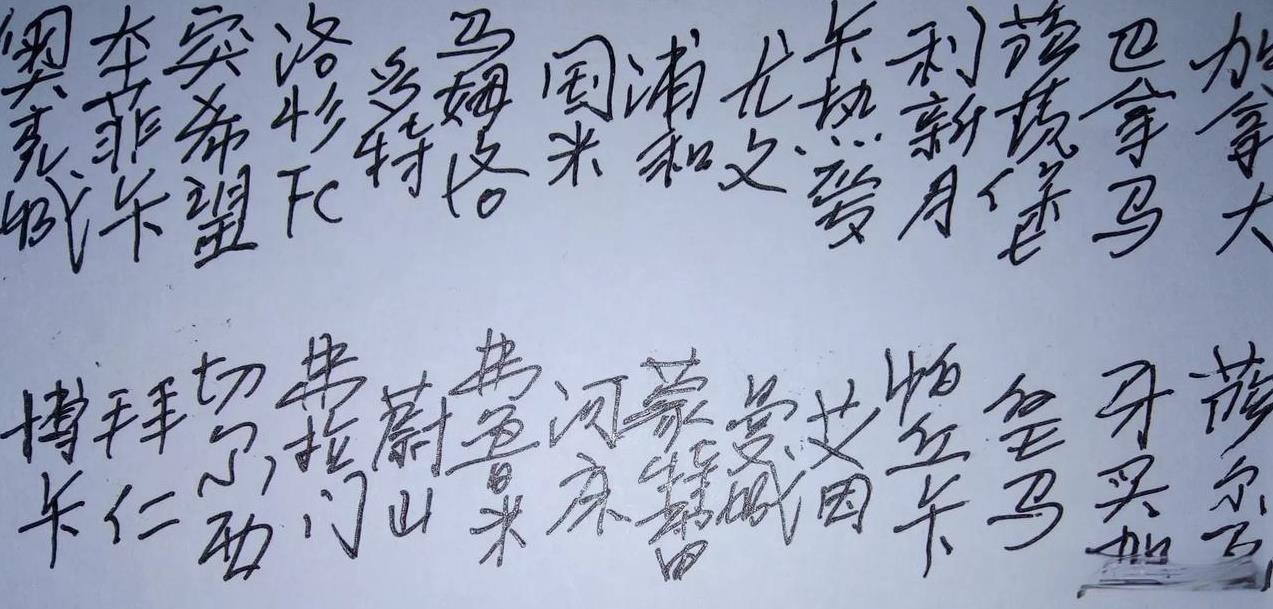 奥克城
本菲卡
突希望
洛杉FC
多特
马姆洛
国米
浦和
尤文
卡热爱
利新月
萨堡
巴拿马
加拿大
博卡
拜仁
切尔西
弗拉门
蔚山
弗鲁米
河床
蒙特雷
曼城
艾因
帕丘卡
皇马
牙买加
萨尔